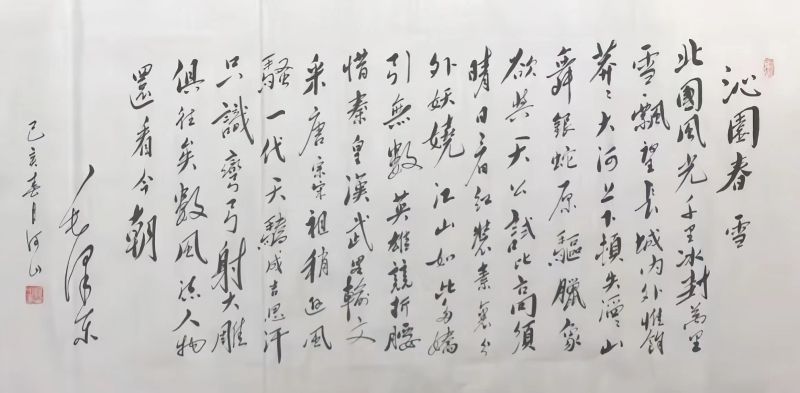 沁園春 雪
北國風光千里冰封萬里
雪飄望長城内外惟餘
莽々大河上下頓失滔々山
舞銀蛇原驅臘象
欲與天公試比高須
晴日看紅裝素裹分
外妖嬈江山如此多嬌
引無數英雄競折腰
惜秦皇漢武畧輸文
采唐宗宋祖稍遜風
騷一代天驕成吉思汗
只識彎弓射大雕
俱往矣數風流人物
還看今朝
毛澤東
己亥春月河山